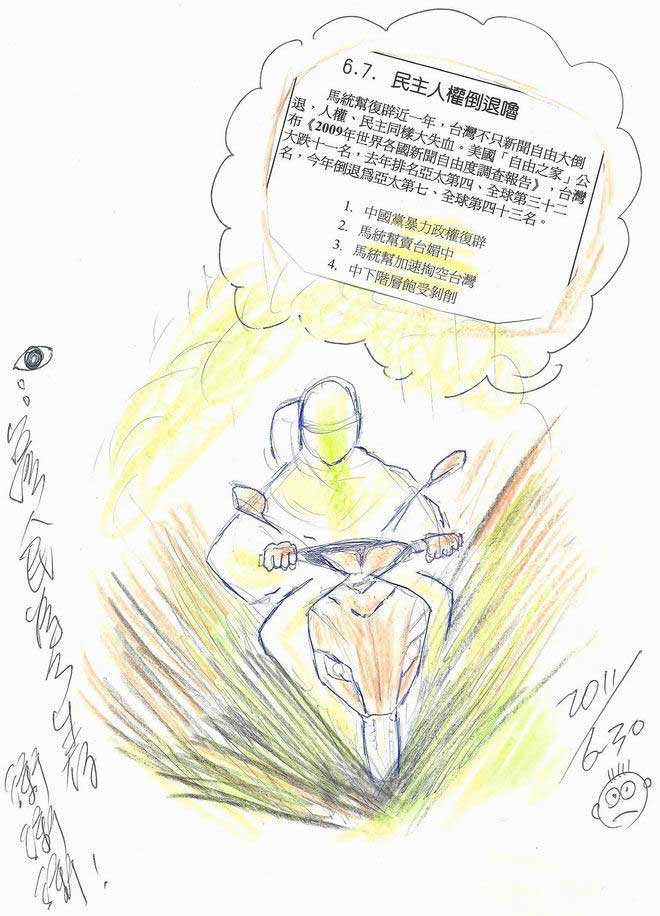 6.7. 民主人權倒退嚕
馬統幫復辟近一年，台灣不只新聞自由大倒
退，人權、民主同樣大失血。美國「自由之家」公
布《2009年世界各國新聞自由度調查報告》，台灣
大跌十一名，去年排名亞太第四、全球第三十二
名，今年倒退為亞太第七、全球第四十三名。
1. 中國黨暴力政權復辟
2. 馬統幫賣台媚中
3. 馬統幫加速掏空台灣
4. 中下階層飽受剝削
人民
2011/
6.30